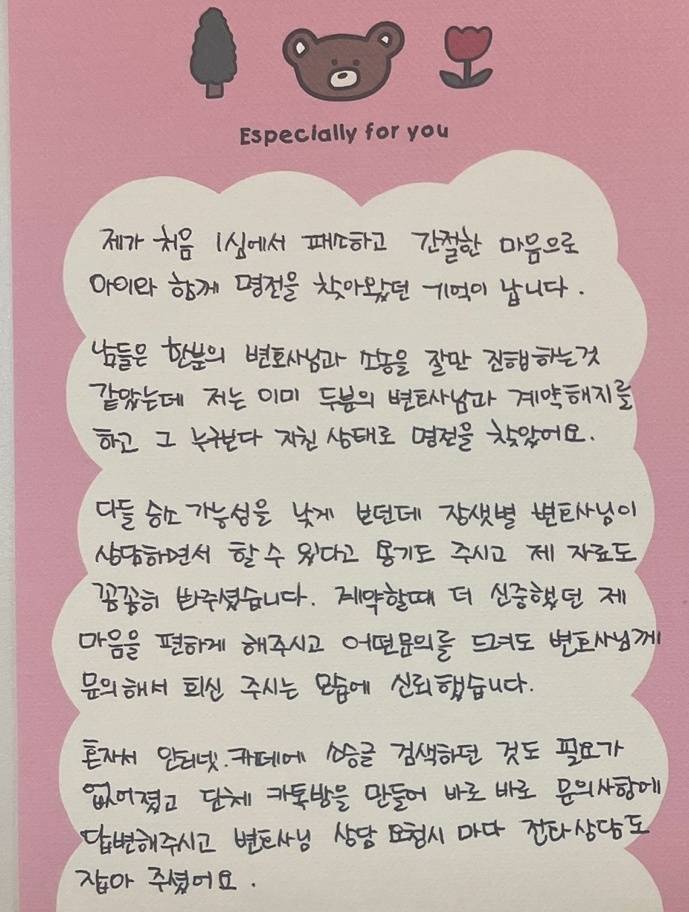 Especially for you
제가 처음 1심에서 패소하고 간절한 마음으로
아이와 함께 명전을 찾아왔던 기억이 납니다.
남들은 한분의 변호사님과 소송을 잘만 진행하는것
같았는데 저는 이미 두분의 변호사님과 계약해지를
하고 그 누구보다 지친 상태로 명전을 찾았어요.
다들 승소 가능성을 낮게 보던데 장샛별 변호사님이
상담하면서 할 수 있다고 용기도 주시고 제 자료도
꼼꼼히 봐주셨습니다. 계약할때 더 신중했던 제
마음을 편하게 해주시고 어떤문의를 드려도 변호사님께
문의해서 회신 주시는 모습에 신뢰했습니다.
혼자서 인터넷.카페에 소송글 검색하던 것도 필요가
없어졌고 단체 카톡방을 만들어 바로 바로 문의사항에
답변해주시고 변호사님 상담 요청시 마다 전화상담도
잡아 주셨어요.